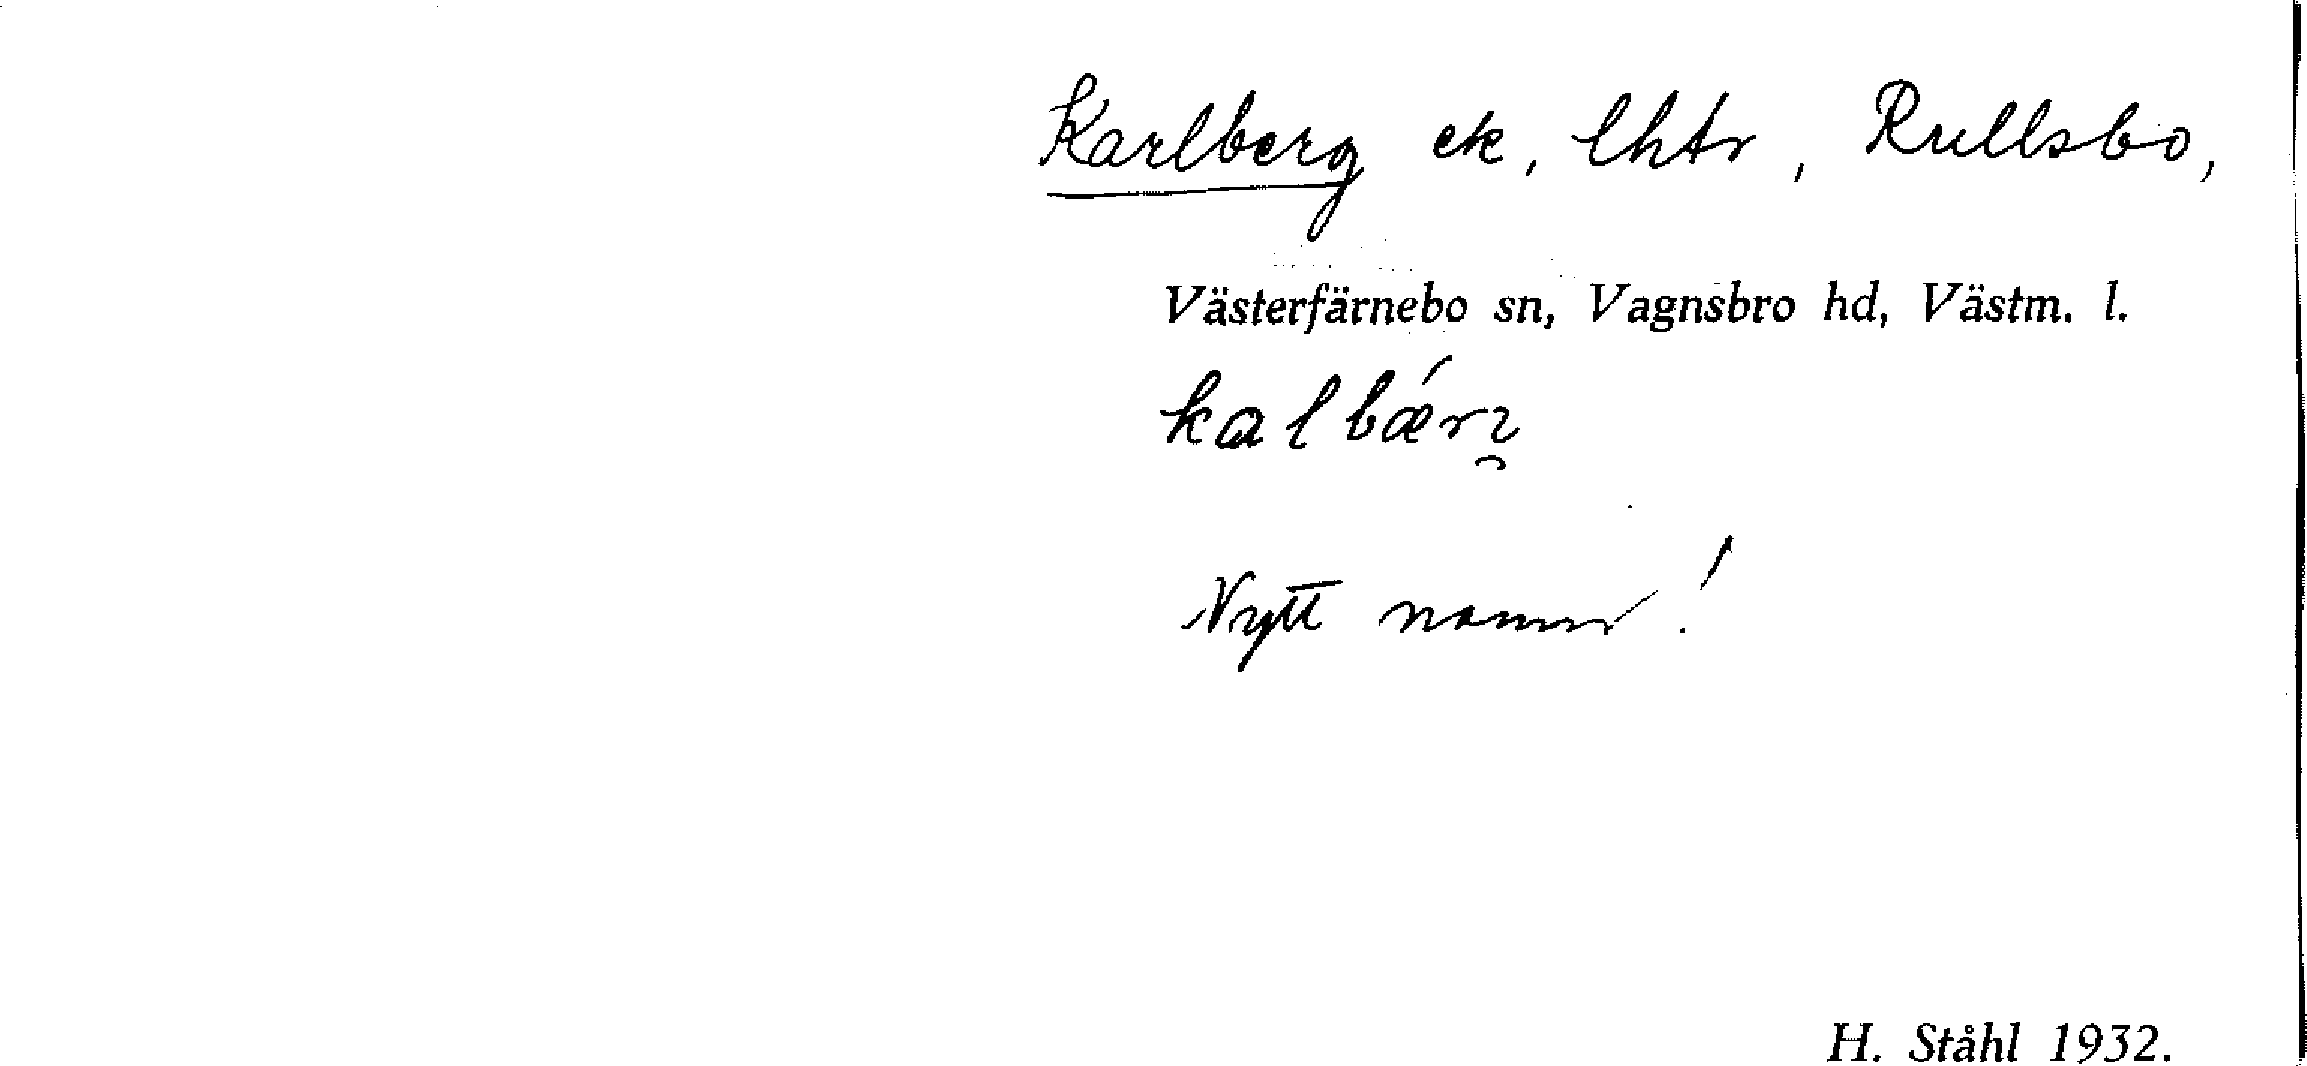 Karlberg ek, lhtr, Rullsbo,
Västerfärnebo sn, Vagnsbro hd, Västm. l.
Nytt namn!
H. Ståhl 1932.